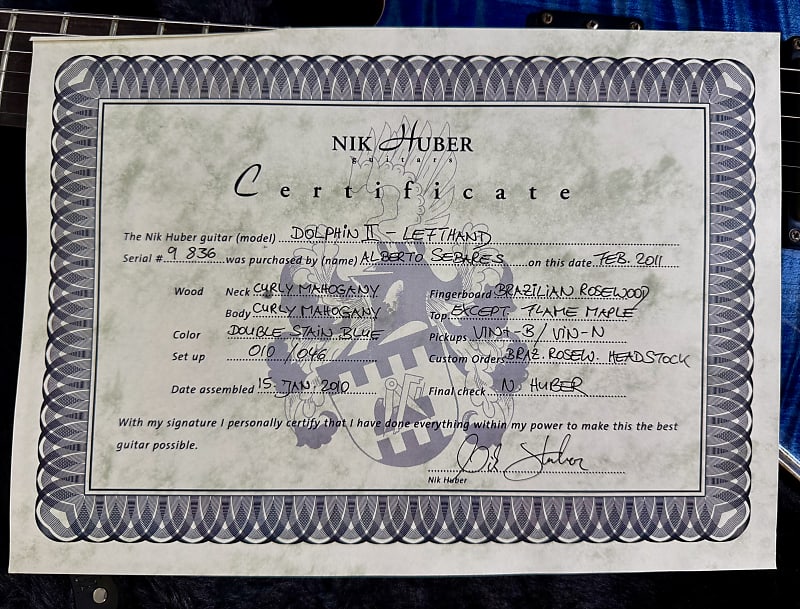 NIK HUBER
guitars
Certificate
The Nik Huber guitar (model) DOLPHIN II - LEFTHAND
Serial # 9 836 was purchased by (name) ALBERTO SEBARES on this date FEB. 2011
Wood Neck CURLY MAHOGANY Fingerboard BRAZILIAN ROSEWOOD
Body CURLY MAHOGANY Top EXCEPT. FLAME MAPLE
Color DOUBLE STAIN BLUE Pickups VINT-B/ VIN-N
Set up 010 /046 Custom Orders BRAZ. ROSEW. HEADSTOCK
Date assembled 15. JAN. 2010 Final check N. HUBER
With my signature I personally certify that I have done everything within my power to make this the best
guitar possible.
Nik Huber
Nik Huber